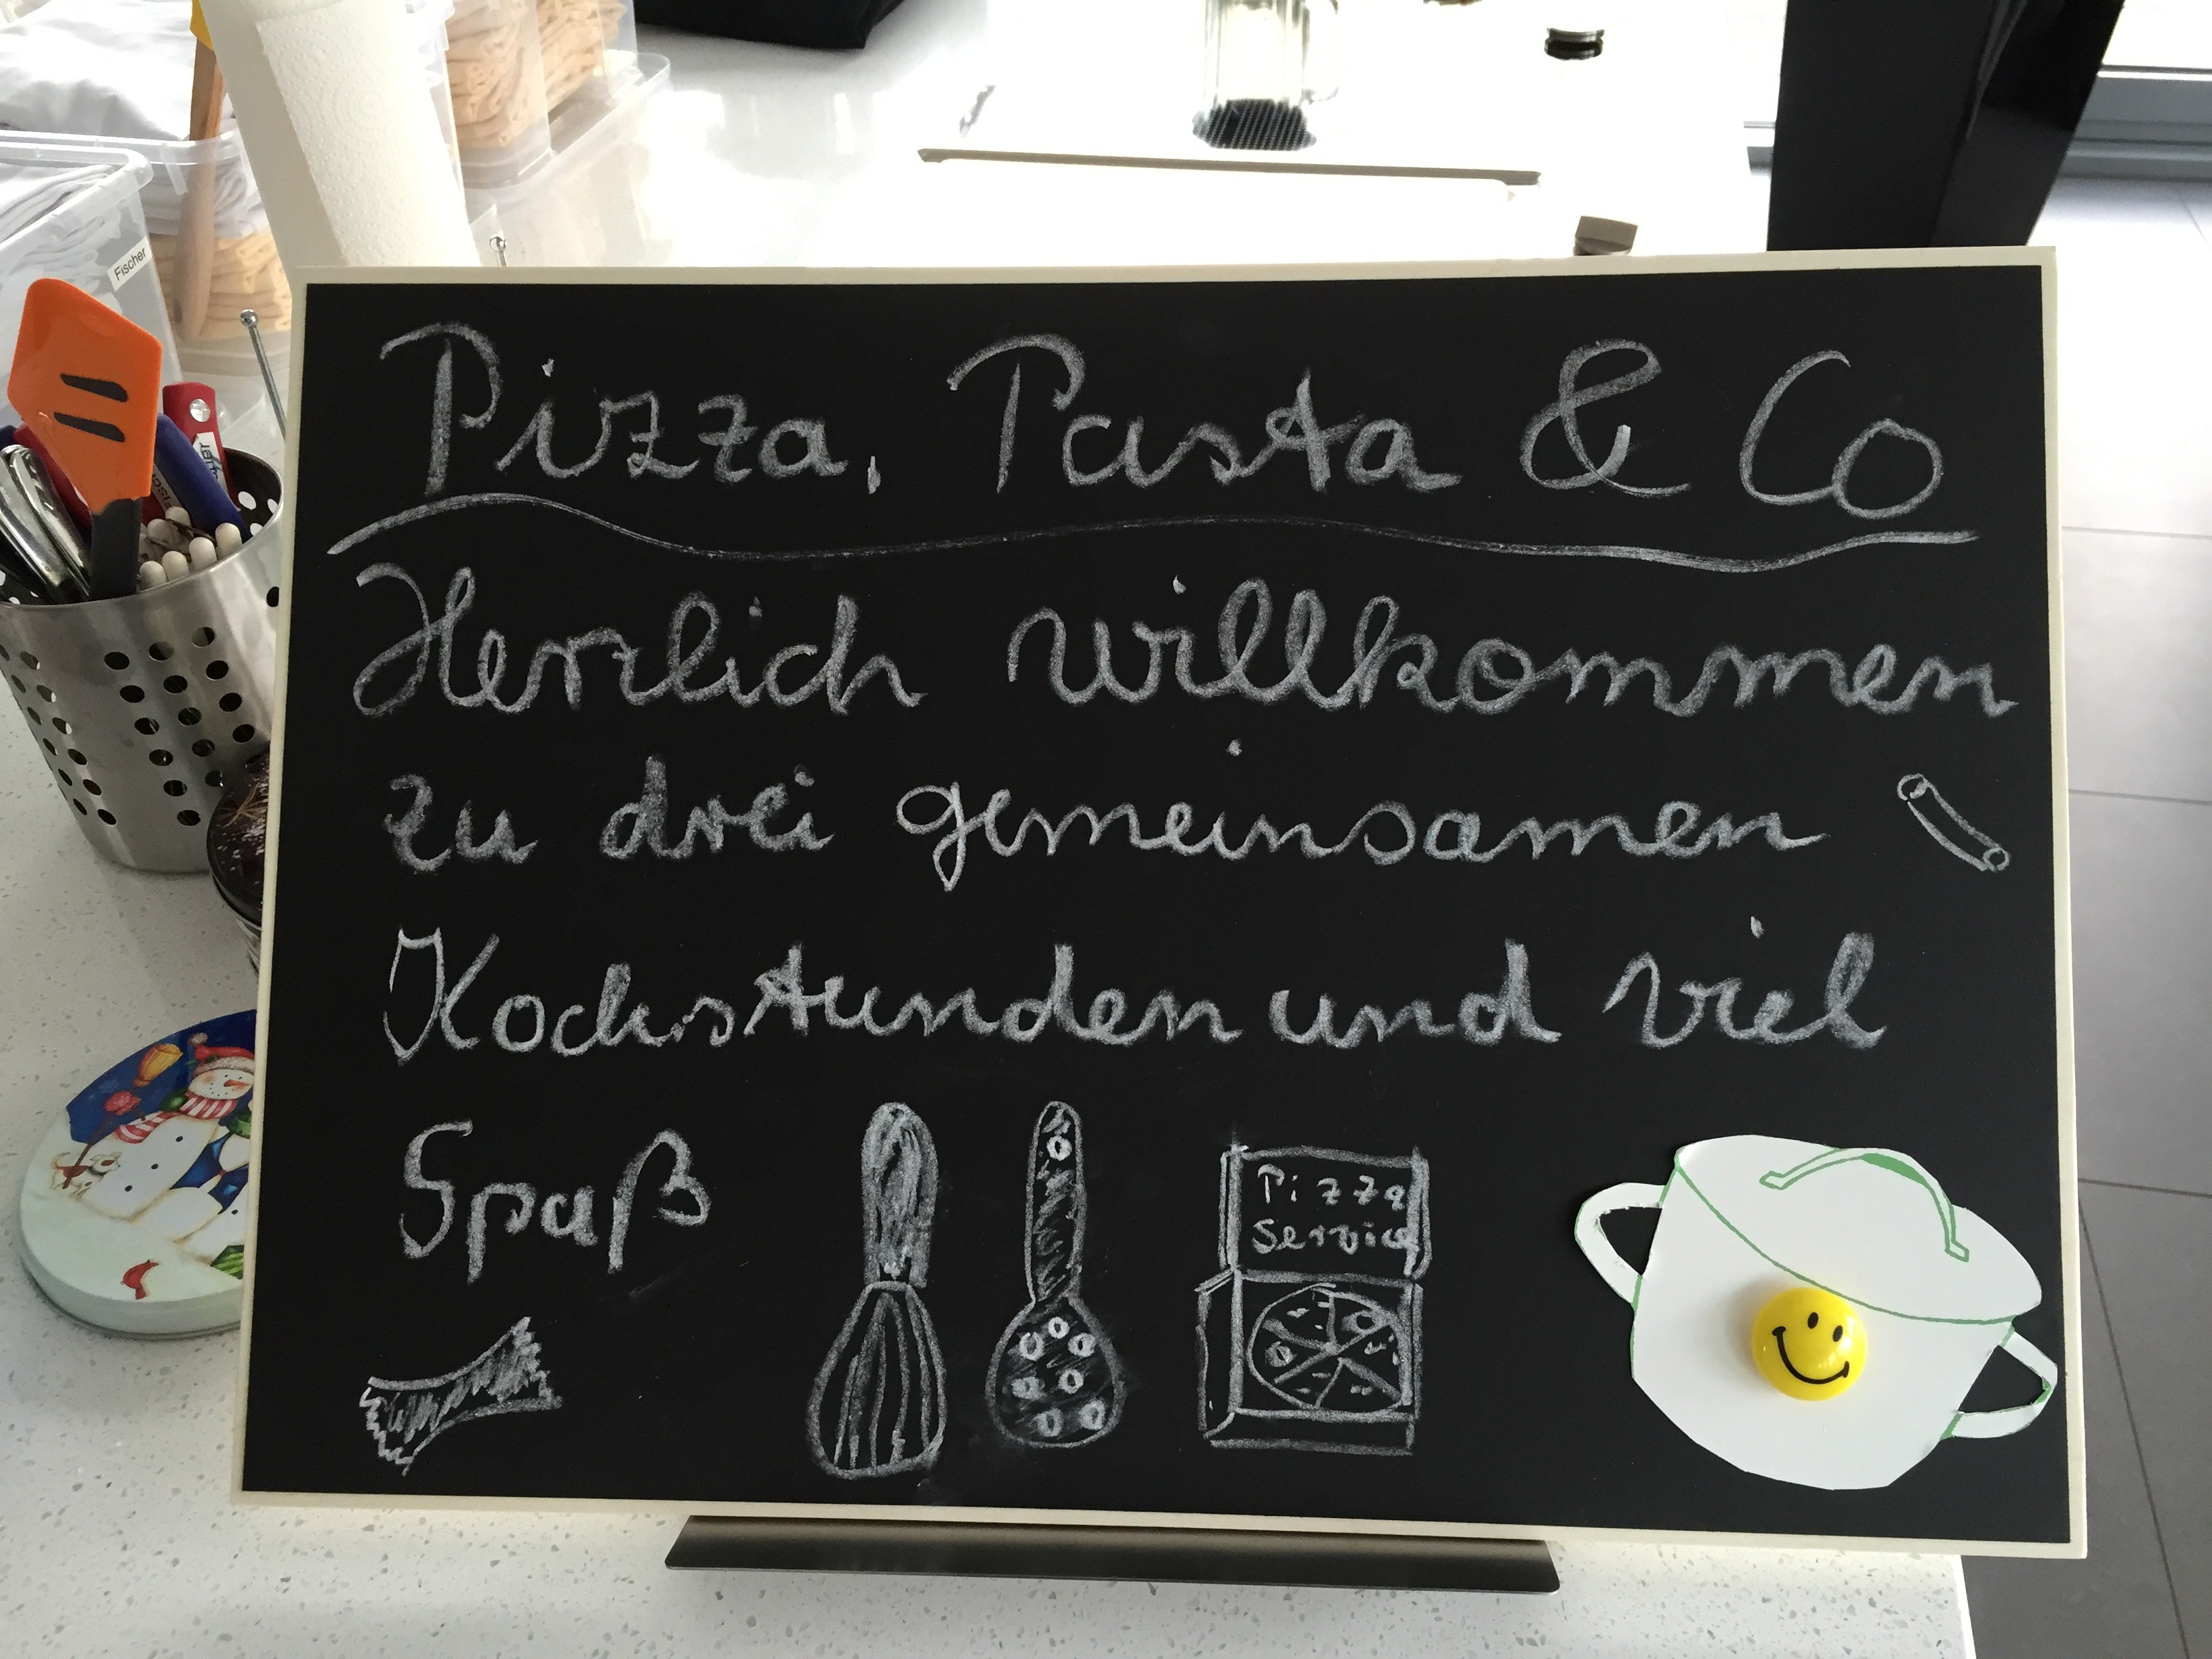 Fischer
Pizza, Pasta & Co
Herzlich willkommen
zu drei gemeinsamen
Kochstunden und viel
Spaß
Pizza
Service